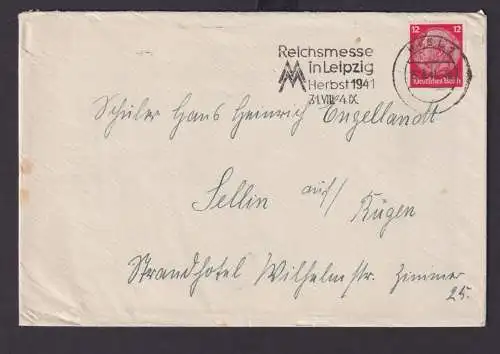 Reichsmesse
in Leipzig
Herbst 1941
31.VIII.-4.IX.
12 12
Deutsches Reich
Schüler Hans Heinrich Engellandt
Sellin auf/
Rügen
Strandhotel Wilhelmstr. Zimmer
25.